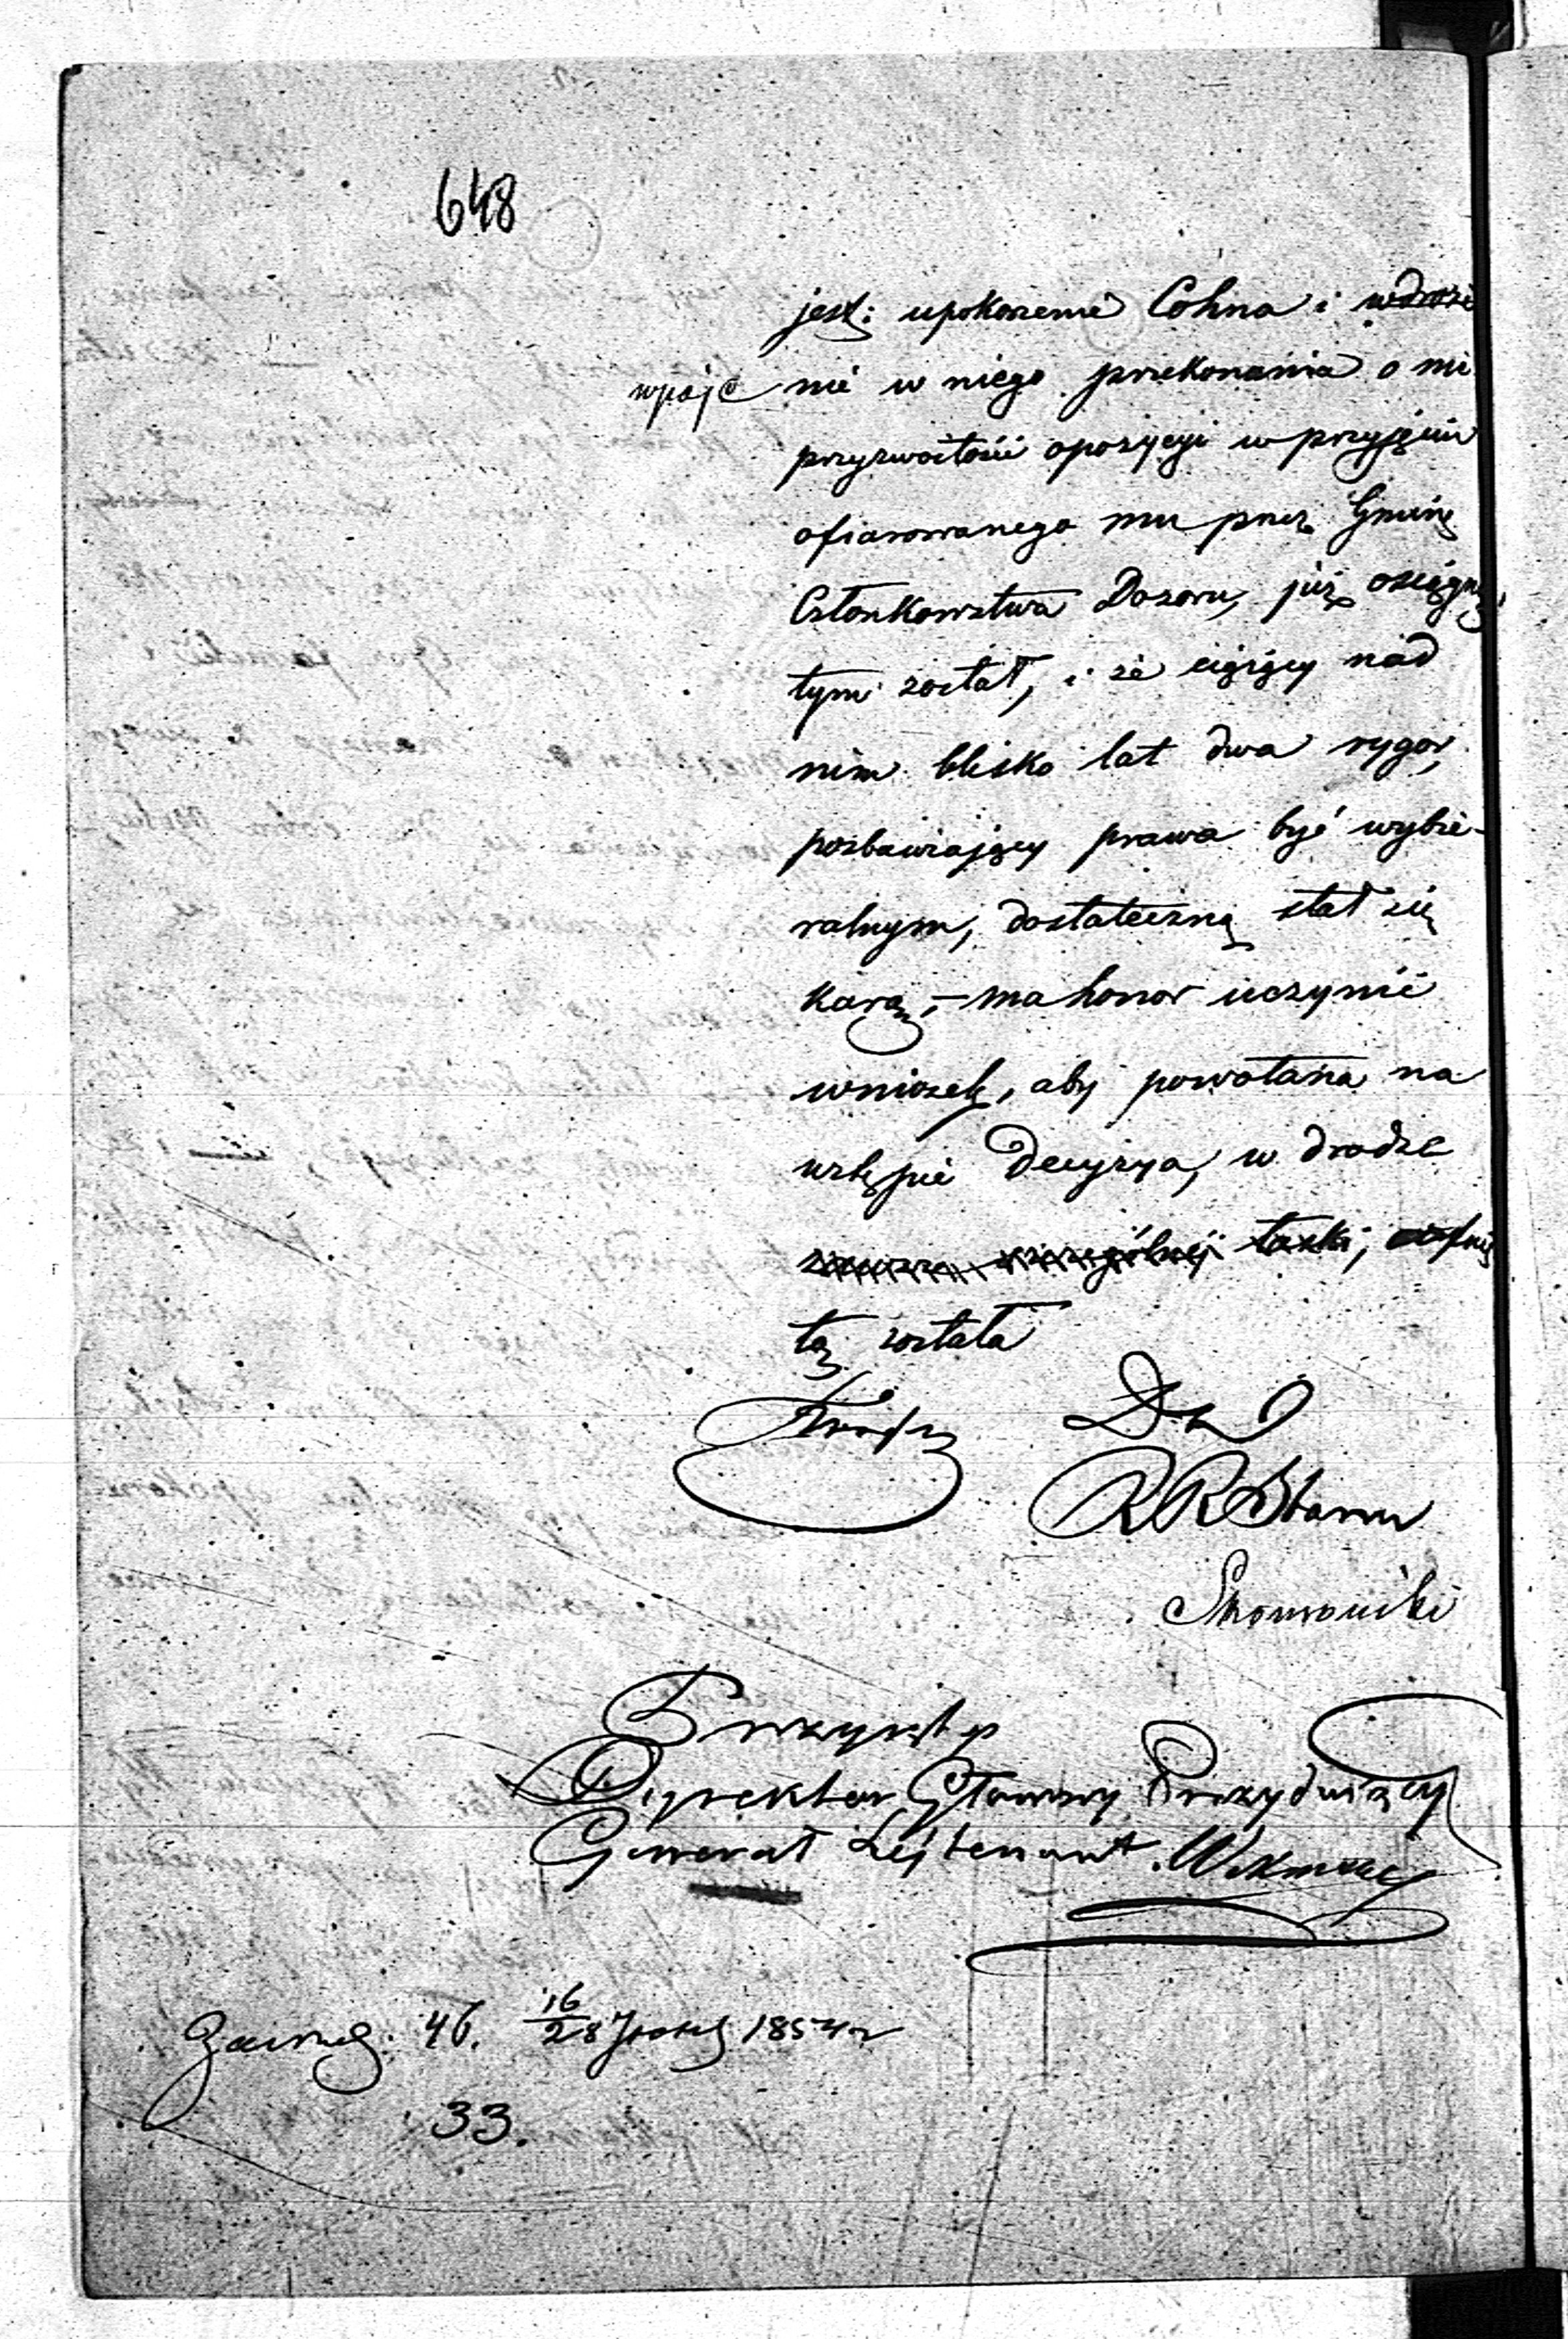 648
jest: upokorzenie Cohna i wdroże
wpoje nie w niego przekonania o nie
przyzwoitości opozycyi w przyjęciu
ofiarowanego mu przez Gminę
Członkowstwa Dozoru, już osięgnę
tym został, i że ciążący nad
nim blisko lat dwa rygor,
pozbawiający prawa być wybie-
ralnym, dostateczną stał się
karą, – ma honor uczynić
wniosek, aby powołana na
wstępie Decyzya, w drodze
szczególnej łaski, cofnię
tą została
R R Stanu
Dyrektor Główny Prezydujący
Generał Lejtenant
46. 16/28 1854 r
33.